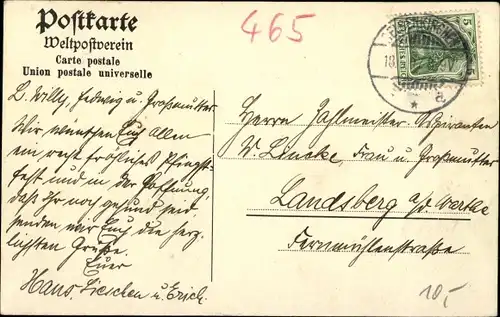 Postkarte
Weltpostverein
Carte postale
Union postale universelle
465
5
L. Willy, Hedwig u. Großmutter.
Wir wünschen Euch Allen
ein recht fröhliches Pfingst-
fest und in der Hoffnung,
daß Ihr noch gesund seid
senden wir Euch die herz-
lichsten Grüße.
Euer
Hans, Lieschen u. Erich.
Herrn Zahlmeister-Aspiranten
W. Lincke, Frau u. Großmutter
Landsberg a/d. Warthe
Fernmühlenstraße
10,-